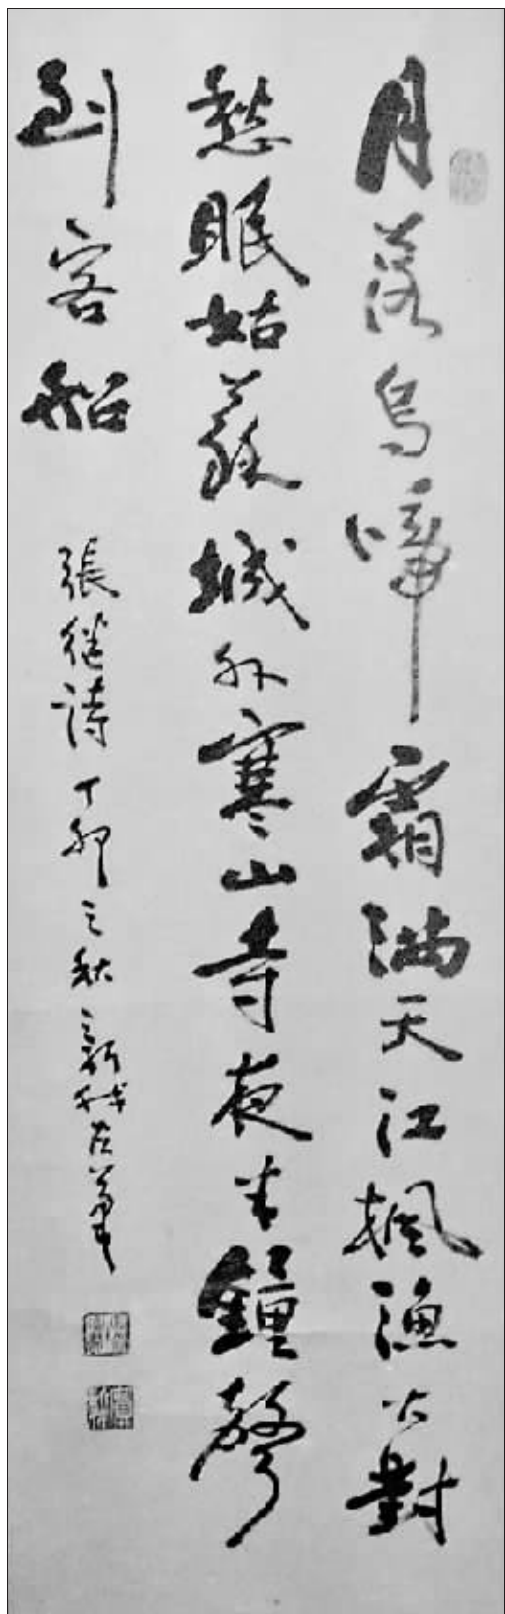 月落烏啼霜滿天江楓漁火對
愁眠姑蘇城外寒山寺夜半鐘聲
到客船
張繼詩丁卯之秋新